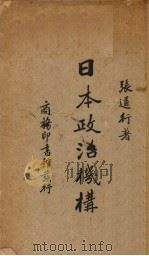 張道行著
日本政治機構
商務印書館發行
www.ertongbook.com